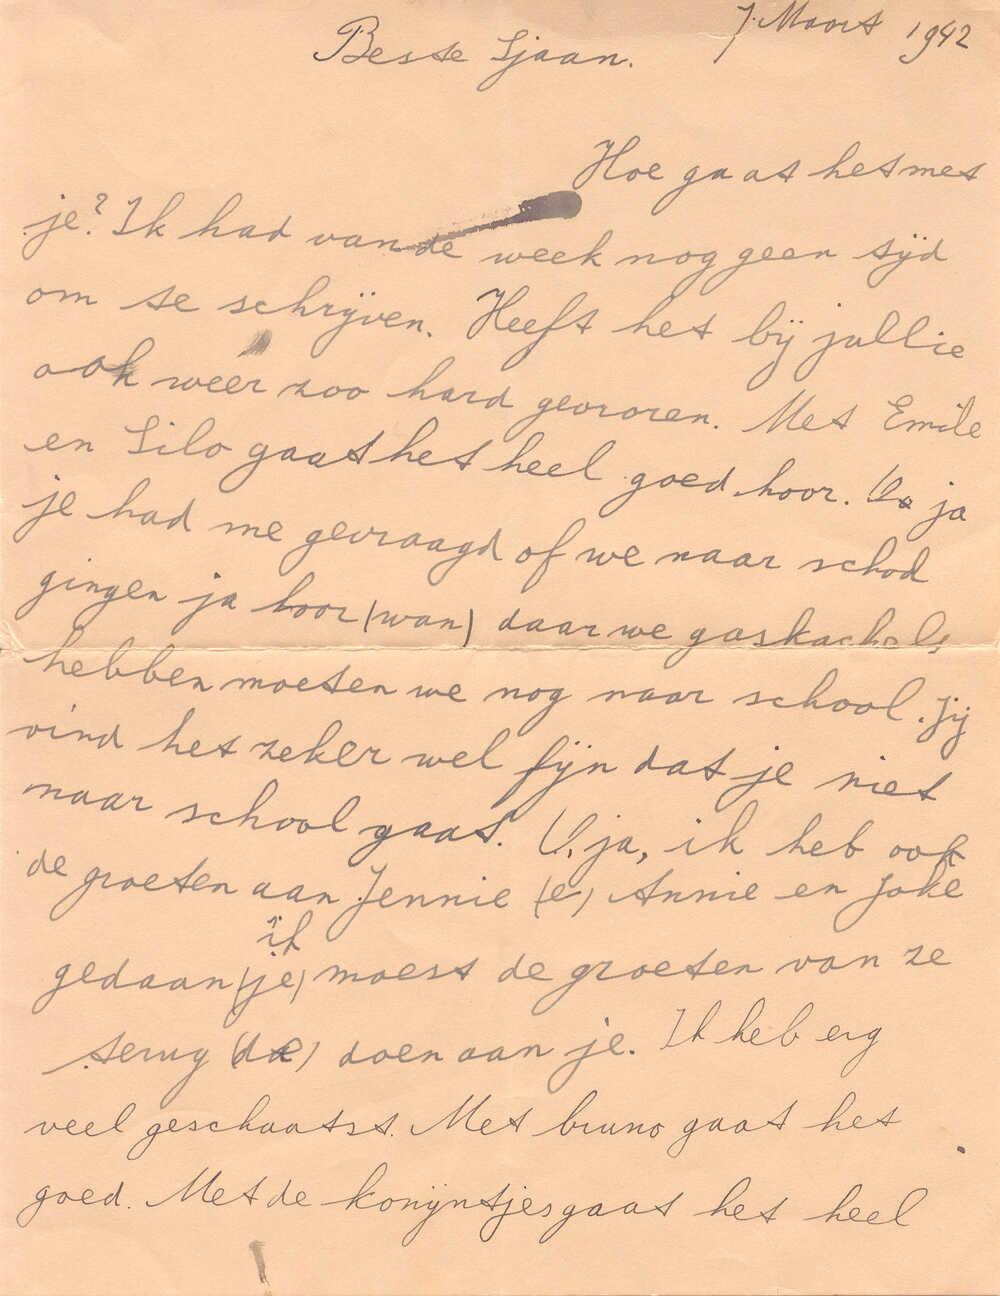 7 Maart 1942
Beste Sjaan.
Hoe gaat het met
je? Ik had van de week nog geen tijd
om te schrijven. Heeft het bij jullie
ook weer zoo hard gevroren. Met Emile
en Lilo gaat het heel goed hoor. O ja
je had me gevraagd of we naar school
gingen ja hoor (wan) daar we gaskachels
hebben moeten we nog naar school. Jij
vind het zeker wel fijn dat je niet
naar school gaat. O, ja, ik heb ook
de groeten aan Jennie (e) Annie en Joke
ik
gedaan (je) moest de groeten van ze
terug (de) doen aan je. Ik heb erg
veel geschaatst. Met bruno gaat het
goed. Met de konijntjes gaat het heel